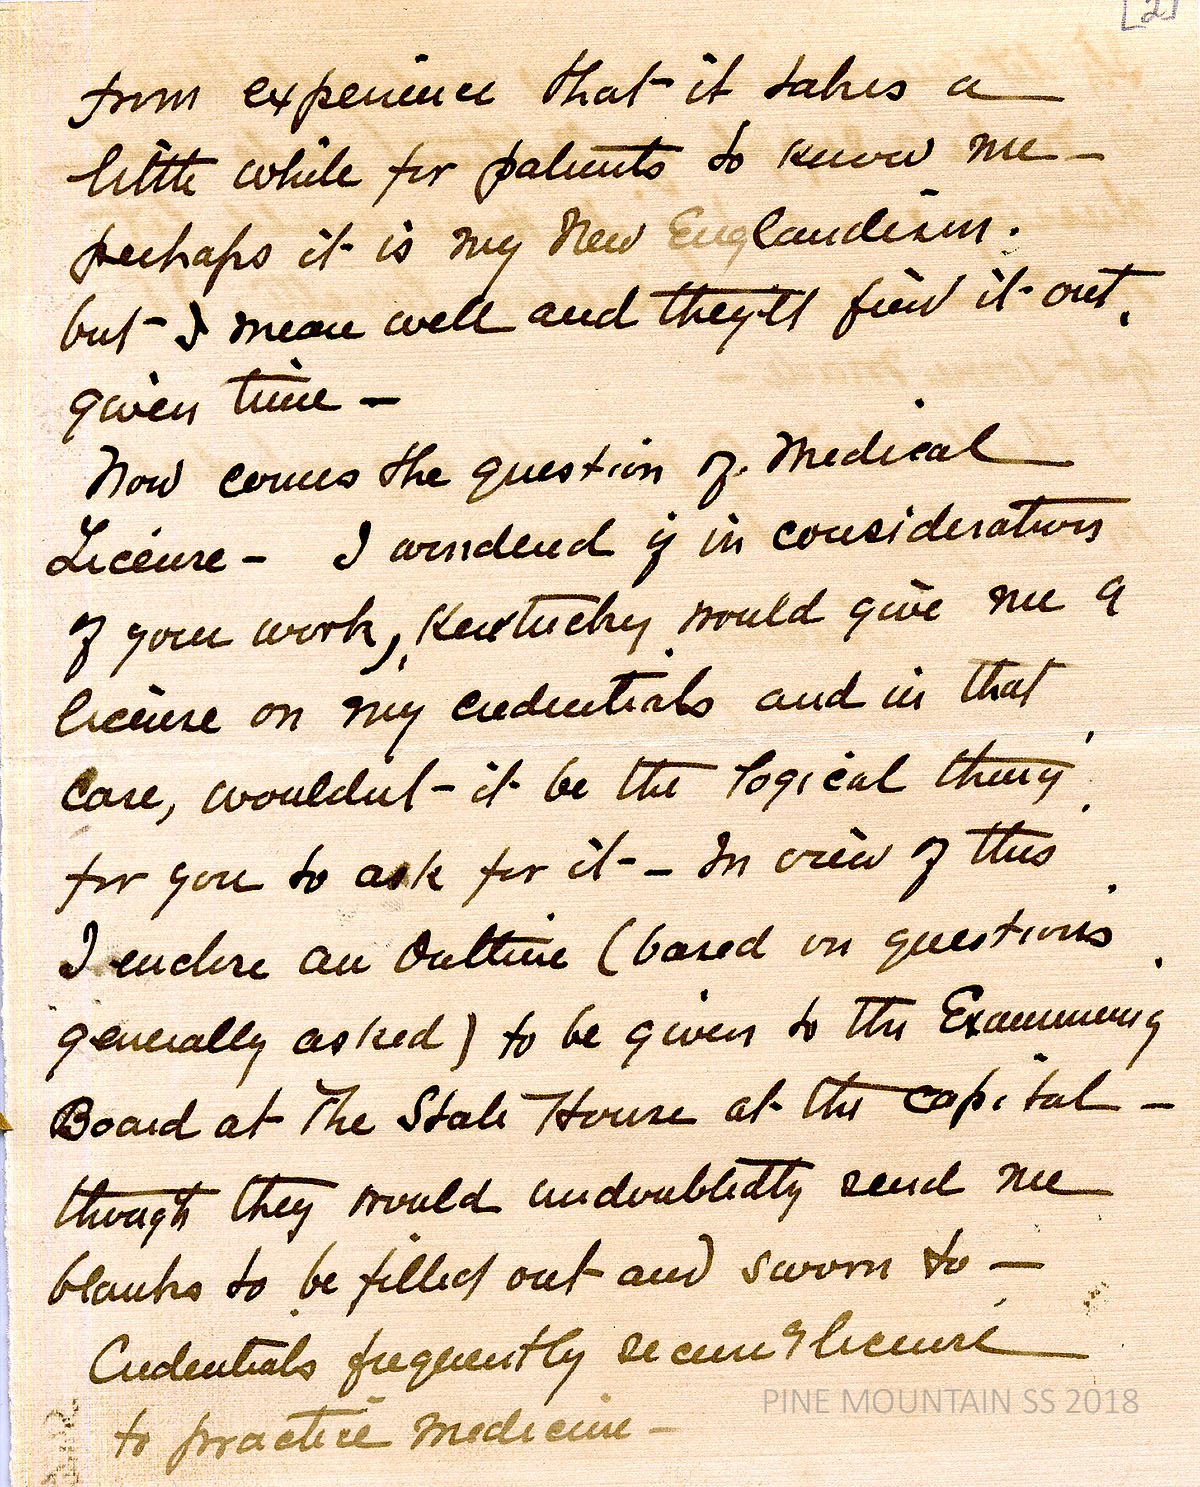 [2]
from experience that it takes a
little while for patients to know me —
perhaps it is my New Englandism.
but I mean well and they'll find it out,
given time —
Now comes the question of Medical
License — I wondered if in consideration
of your work, Kentucky would give me a
license on my credentials and in that
case, wouldn't it be the logical thing
for you to ask for it — In view of this
I enclose an Outline (based on questions
generally asked) to be given to the Examining
Board at The State House at the capital —
though they would undoubtedly send me
blanks to be filled out and sworn to —
Credentials frequently secure a license
to practice medicine —
PINE MOUNTAIN SS 2018